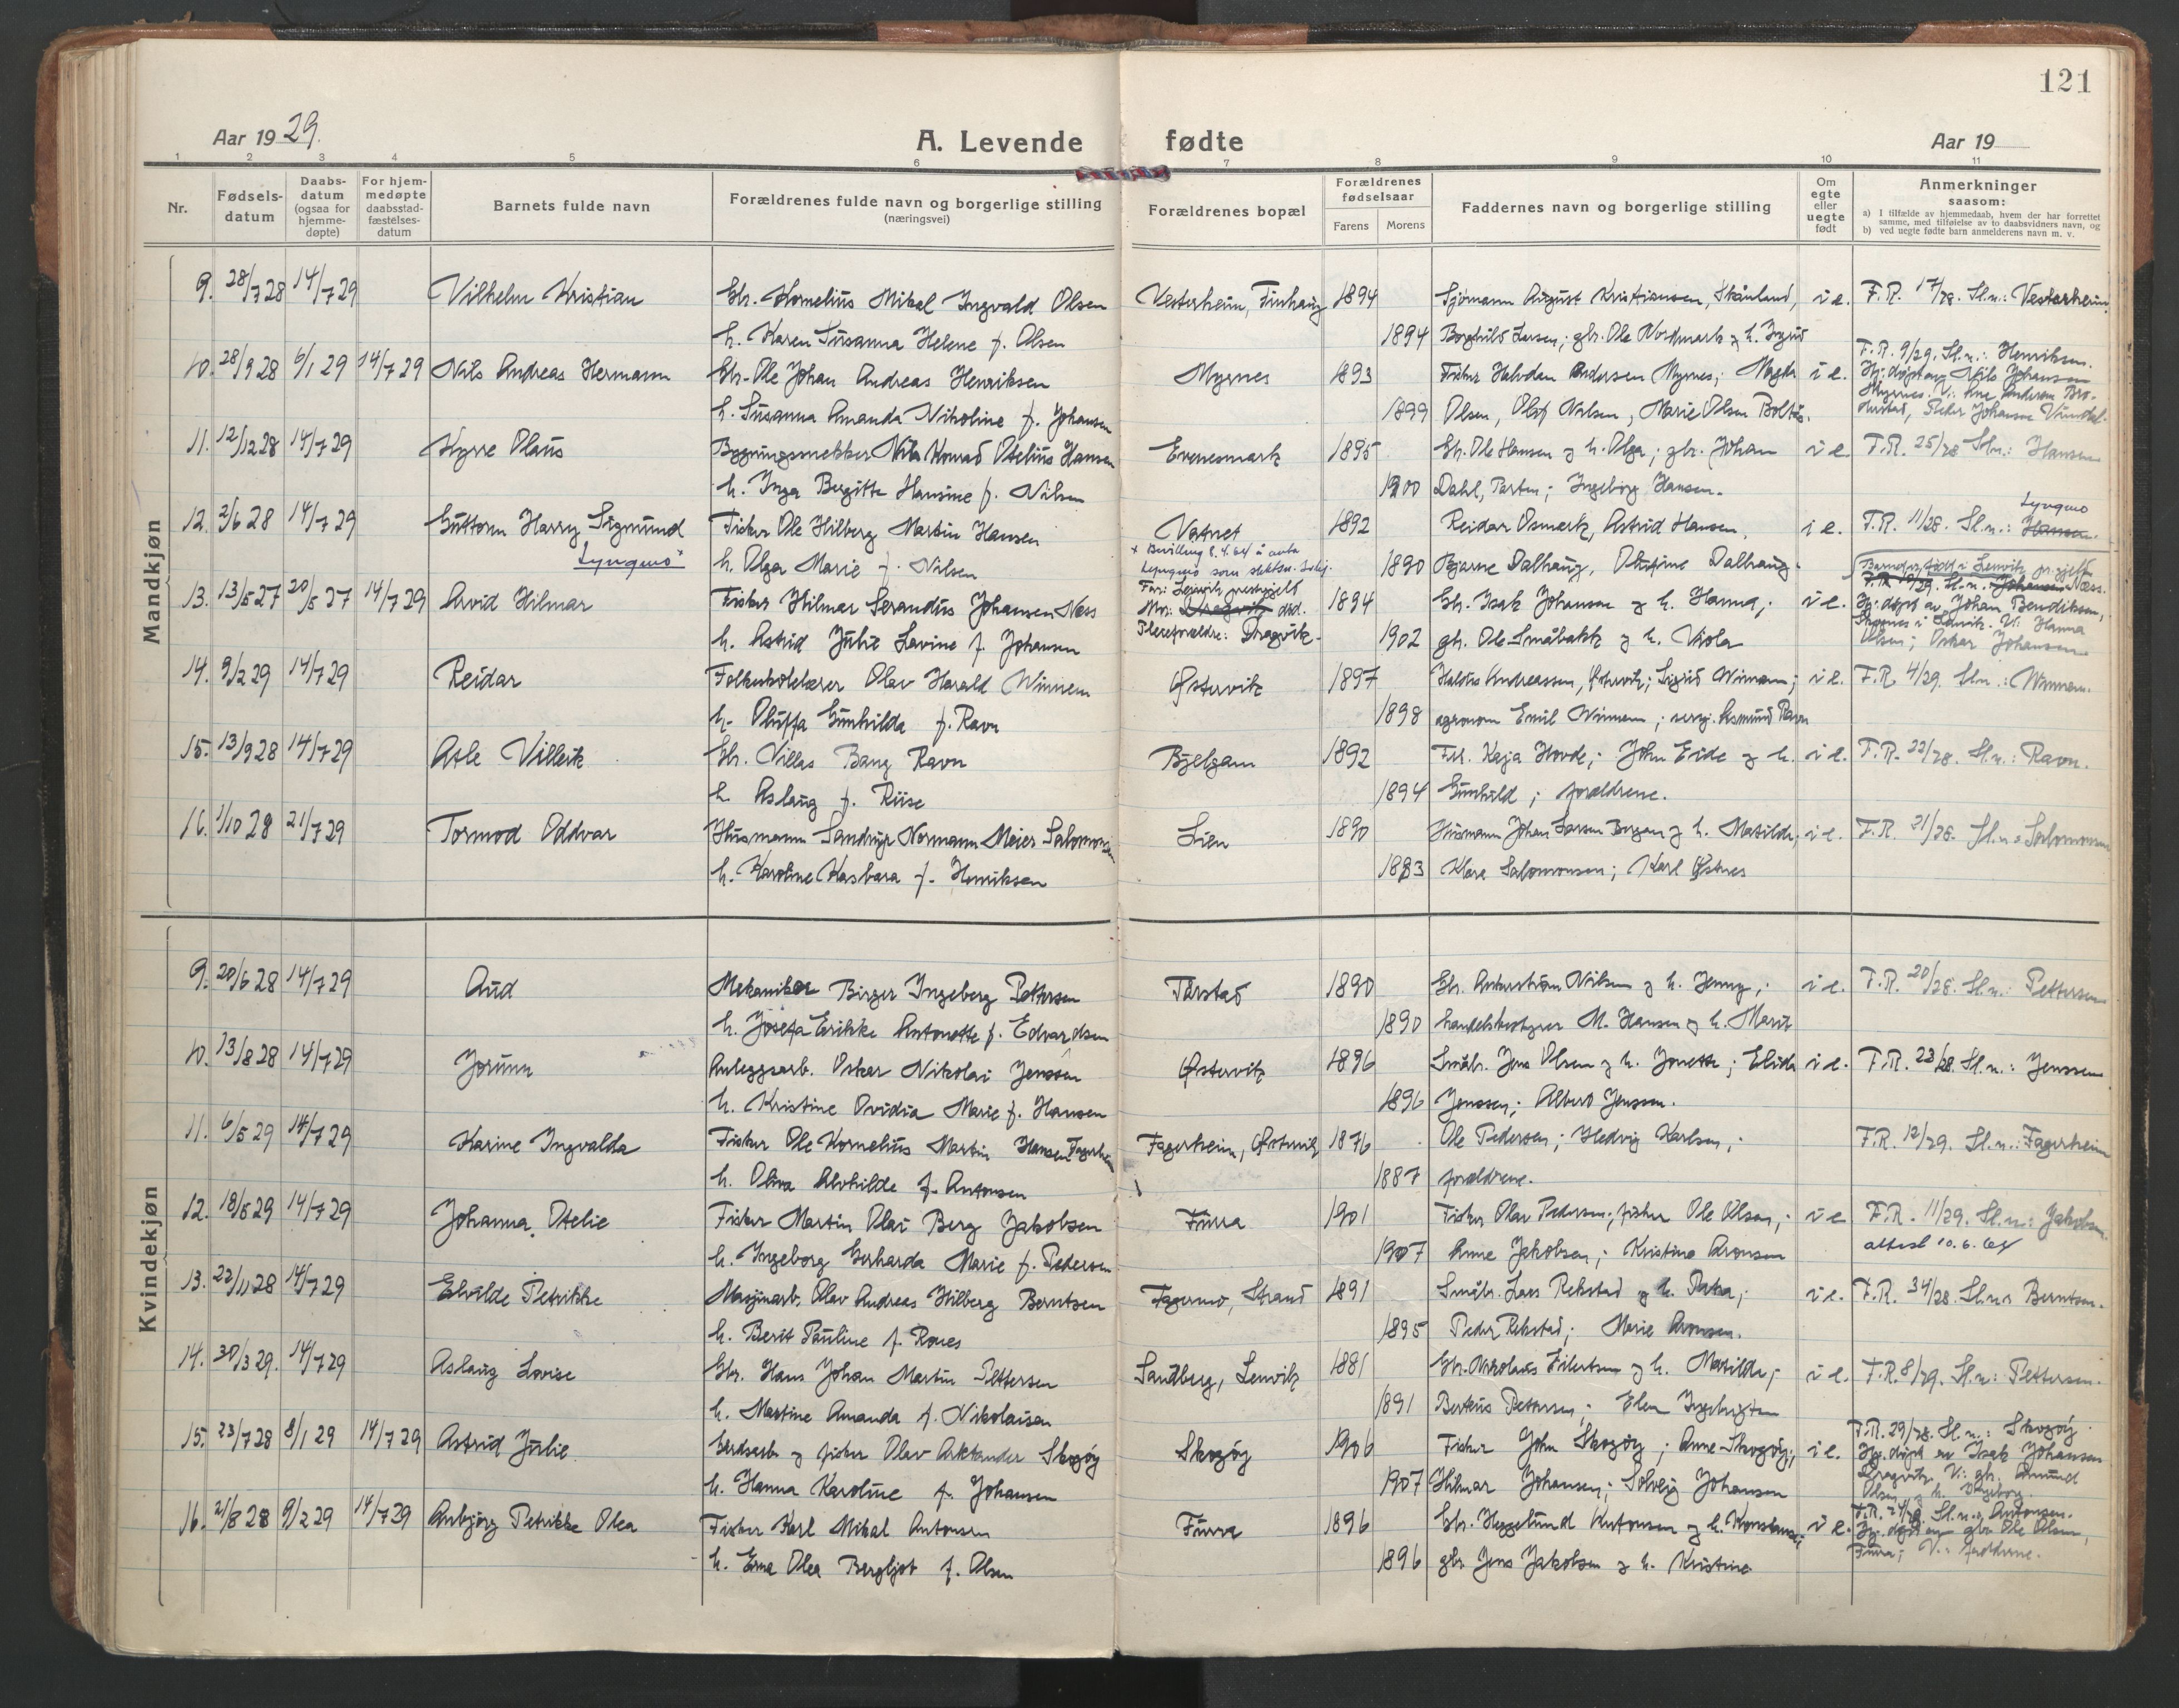 121
Aar 1929.
A. Levende fødte
Aar 19
1 2 3 4 5 6 7 8 9 10 11
Nr.
Fødselsdatum
Daabsdatum (ogsaa for hjemmedøpte)
For hjemmedøpte daabsstadfæstelsesdatum
Barnets fulde navn
Forældrenes fulde navn og borgerlige stilling (næringsvei)
Forældrenes bopæl
Forældrenes fødselsaar
Farens Morens
Faddernes navn og borgerlige stilling
Om egte eller uegte født
Anmerkninger saasom:
a) I tilfælde av hjemmedaab, hvem der har forrettet samme, med tilføielse av to daabsvidners navn, og
b) ved uegte fødte barn anmelderens navn m. v.
Mandkjøn
9. 28/7 28 14/7 29 Vilhelm Kristian Gbr. Kornelius Mikal Ingvald Olsen Vesterheim, 1894 Sjømann August Kristiansen, Skånland, i e. F.R. 17/28. Sl.n.: Vesterheim
h. Karen Susanna Helene f. Olsen 1894 Borghild Larsen; gbr. Ole Nordmark og h. Ingrid
10. 28/9 28 6/1 29 14/7 29 Nils Andreas Hermann Gbr. Ole Johan Andreas Henriksen Myrnes 1893 Fisker Halvdan Andersen Myrnes; Magda i e. F.R. 9/29. Sl.n.: Henriksen.
Hj. døpt av Nils Johansen
h. Susanna Amanda Nikoline f. Johansen 1899 Olsen, Olaf Nilsen, Marie Olsen Boltås.
Myrnes. V.:
Peder Johansen
11. 12/12 28 14/7 29 Kyrre Olaus Bygningssnekker Nils Konrad Otelius Hansen Evenesmark 1895 Gbr. Ole Hansen og h. Olga; gbr. Johan i e. F.R. 25/28 Sl.n.: Hansen
h. Inga Bergitte Hansine f. Nilsen 1900 Dahl, Ingeborg Hansen.
12. 2/6 28 14/7 29 Guttorm Harry Sigmund Fisker Ole Hilberg Martin Hansen Vatnet 1892 Reidar Osmark, Astrid Hansen, i e. F.R. 11/28. Sl.n.: Hansen. Lyngmo
Lyngmo x h. Olga Marie f. Nilsen x Bevilling 8.4.64 å anta Lyngmo som slektsn. 1890 Bjarne Dalhaug, Dalhaug.
13. 13/5 27 20/5 27 14/7 29 Arvid Hilmar Fisker Hilmar Serandus Johansen Næss Far: Lenvik prestegjeld Mor: død. 1894 Gbr. Isak Johansen og h. Hanna; i e. Barnet er født i Lenvik pr.gjeld
F.R. 19/29. Sl.n.: Johansen Næss.
Hj. døpt av Johan Bendiksen,
h. Astrid Julie Lovine f. Johansen Pleieforældre: Dragvik. 1902 gbr. Ole Småbakk og h. Viola
i Lenvik. V.: Hanna
Olsen; Oskar Johansen
14. 9/2 29 14/7 29 Reidar Folkeskolelærer Olav Harald Winnem Østervik 1897 Halvdis Andreassen, Østervik; Sigrid Winnem; i e. F.R. 4/29. Sl.n.: Winnem.
h. Oluffa Gunhilda f. Ravn 1898 agronom Emil Winnem; serg. Asmund Ravn
15. 13/9 28 14/7 29 Atle Villeik Gbr. Villas Bang Ravn Bjelgam 1892 Frk. Kaja Hovde; John Eide og h. i e. F.R. 22/28. Sl.n.: Ravn.
h. Aslaug f. Riise 1894 Gunhild; forældrene.
16. 1/10 28 21/7 29 Tormod Oddvar Husmann Sandrup Normann Meier Salomonsen Lien 1890 Husmann Johan Larsen Bergan og h. Matilde, i e. F.R. 21/28. Sl.n.: Salomonsen
h. Karoline Kasbara f. Henriksen 1893 Klara Salomonsen; Karl Østnes
Kvindekjøn
9. 20/6 28 14/7 29 Aud Mekaniker Birger Ingeberg Pettersen Tårstad 1890 Gbr. Ankerstrøm Nilsen og h. Jenny; i e. F.R. 20/28. Sl.n.: Pettersen
h. Josefa Erikke Antonette f. Edvardsen 1890 handelsbestyrer M. Hansen og h. Marit
10. 13/8 28 14/7 29 Jorunn Anleggsarb. Oskar Nikolai Jenssen Østervik 1896 Småbr. Jens Olsen og h. Jonette; Elida i e. F.R. 23/28. Sl.n.: Jenssen
h. Kristine Ovidia Marie f. Hansen 1896 Jenssen; Albert Jenssen.
11. 6/5 29 14/7 29 Karine Ingvalda Fisker Ole Kornelius Martin Hansen Fagerheim Fagerheim, Østervik 1876 Ole Pedersen; Hedvig Karlsen; F.R. 12/29. Sl.n.: Fagerheim
h. Oliva Alvhilde f. Antonsen 1887 forældrene.
12. 18/5 29 14/7 29 Johanna Otelie Fisker Martin Olai Berg Jakobsen Furra 1901 Fisker Olav Pedersen; fisker Ole Olsen; i e F.R. 11/29. Sl.n.: Jakobsen.
h. Ingeborg Gerharda Marie f. Pedersen 1907 Anne Jakobsen; Kristine Aronsen attest 10.6.64
13. 22/11 28 14/7 29 Elvilde Petrikke Masjinarb. Olav Andreas Hilberg Berntsen Fagermo, Strand 1891 Småbr. Lars Rekstad og h. i e. F.R. 34/28. Sl.n.: Berntsen.
h. Berit Pauline f. Rones 1895 Peder Rekstad; Marie Aronsen.
14. 30/3 29. 14/7 29 Aslaug Lovise Gbr. Hans Johan Martin Pettersen Sandberg, Lenvik 1881 Gbr. Nikolaus Eilertsen og h. Matilde; i e. F.R. 8/29. Sl.n.: Pettersen.
h. Martine Amanda f. Nikolaisen 1891 Berteus Petersen; Elen Ingebrigtsen
15. 23/7 28 8/1 29 14/7 29 Astrid Julie Gårdsarb. og fisker Olav Arktander Skogøy Skogøy 1906 Fisker John Skogøy; Anne Skogøy; i e. F.R. 29/28. Sl.n.: Skogøy
Hj. døpt av Isak Johansen
h. Hanna Karoline f. Johansen 1907 Hilmar Johansen; Solveig Johansen
Dragvik. V.: gbr. Amund
Olsen og h. Ingeborg.
16. 21/8 28 9/2 29 14/7 29 Anbjørg Petrikke Olea Fisker Karl Mikal Antonsen Furra 1896 Gbr. Heggelund Antonsen og h. Konstanse; i e. F.R. 24/28. Sl.n.: Antonsen.
Hj. døpt av gbr. Ole Olsen,
h. Erna Olea Bergljot f. Olsen 1896 gbr Jens Jakobsen og h. Kristine
Furra; V.: forældrene.